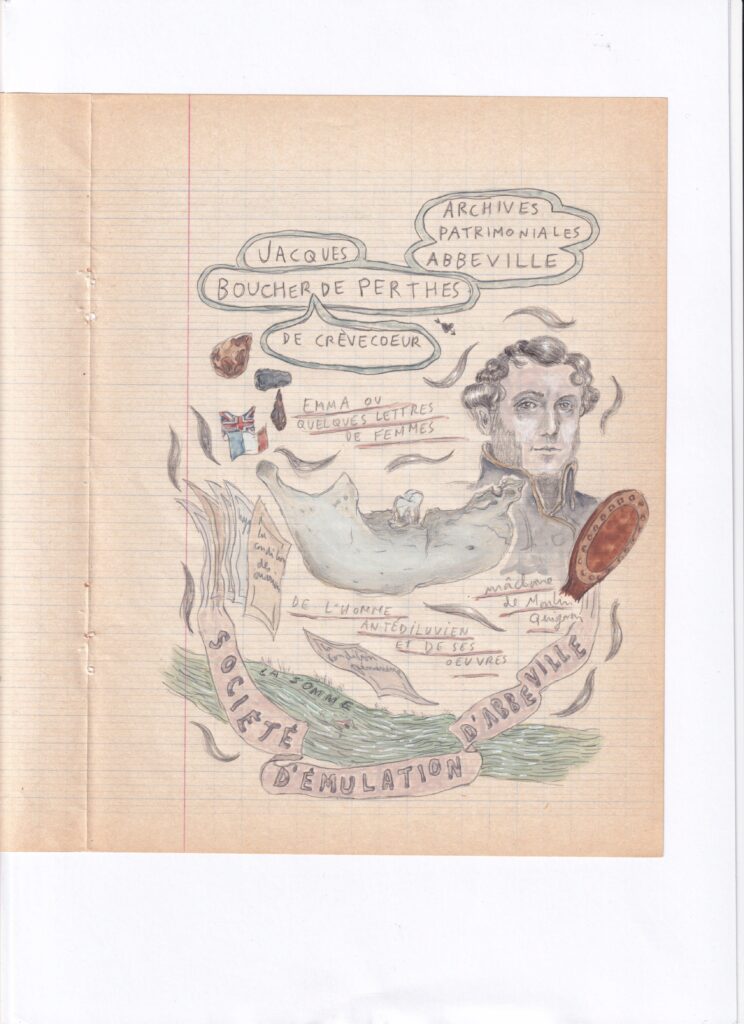 ARCHIVES
PATRIMONIALES
ABBEVILLE
JACQUES
BOUCHER DE PERTHES
DE CRÈVECOEUR
EMMA OU
QUELQUES LETTRES
DE FEMMES
la
condition
des
mâchoire
de Moulin
Quignon
DE L'HOMME
ANTÉDILUVIEN
ET DE SES
OEUVRES
condition
LA SOMME
SOCIÉTÉ
D'ÉMULATION
D'ABBEVILLE